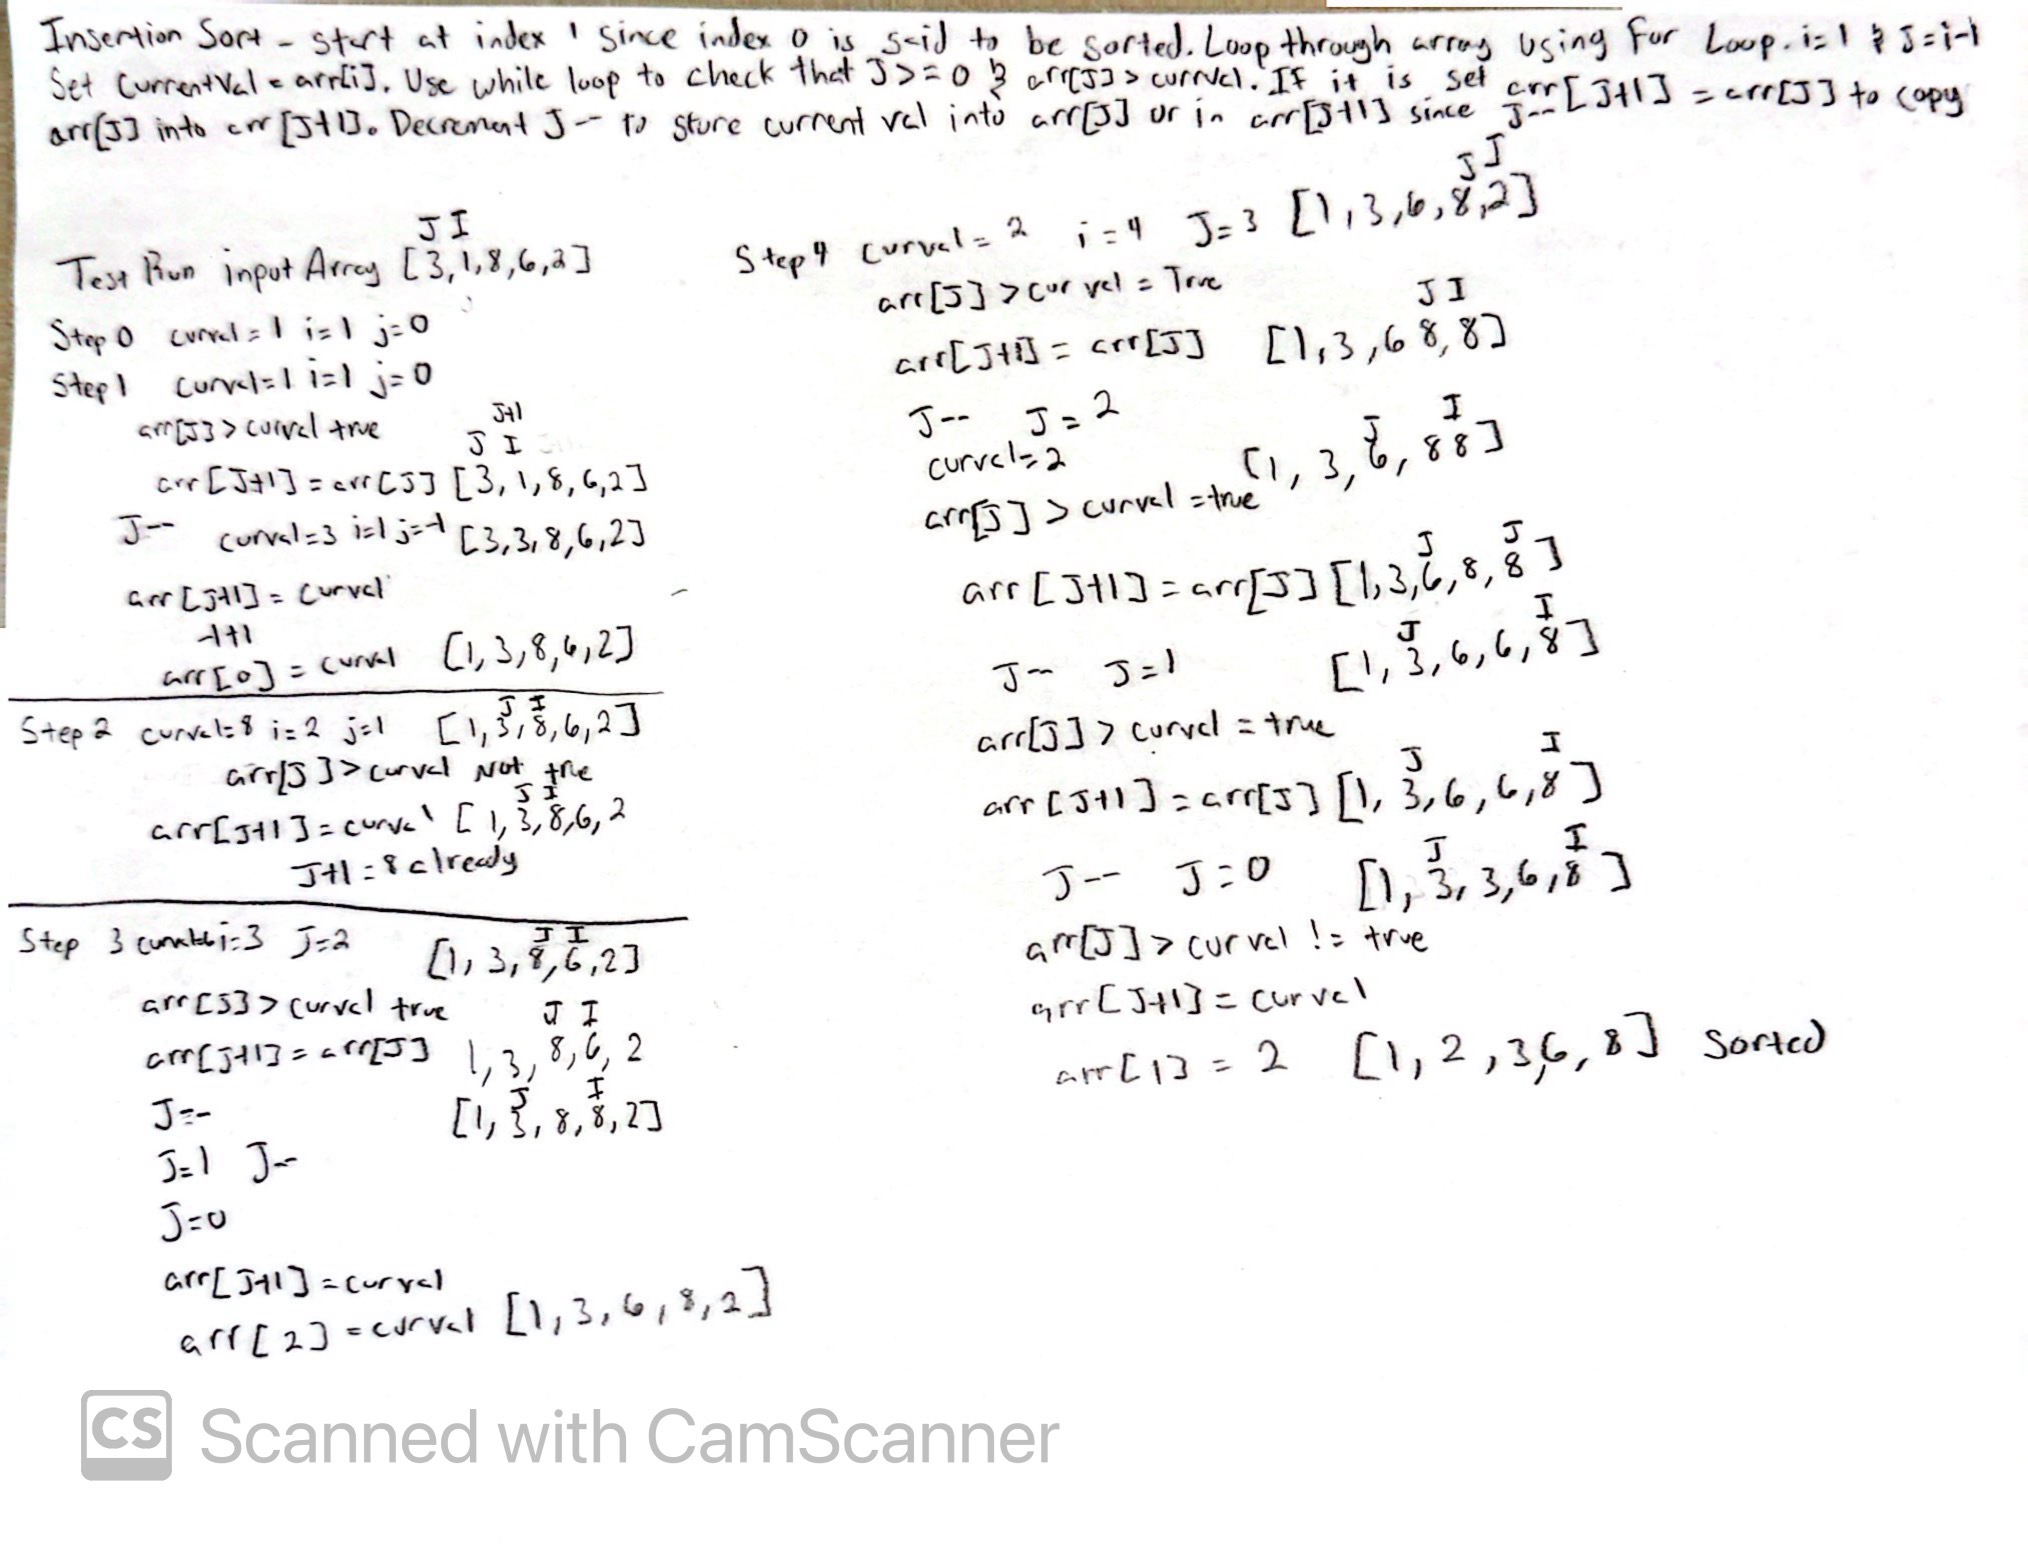 Insertion Sort - start at index 1 since index 0 is said to be sorted. Loop through array using For Loop. i=1 & J=i-1
Set CurrentVal = arr[i]. Use while loop to check that J>=0 & arr[J] > currvel. If it is set arr[J+1] = arr[J] to copy
arr[J] into arr[J+1]. Decrement J-- to store current val into arr[J] or in arr[J+1] since J--
J I
Test Run input Array [3,1,8,6,2]
Step 0 curval=1 i=1 j=0
Step 1 curval=1 i=1 j=0
arr[J] > curval true
J+1
J I
arr[J+1] = arr[J] [3,1,8,6,2]
J-- curval=3 i=1 j=-1 [3,3,8,6,2]
arr[J+1] = curval
-1+1
arr[0] = curval [1,3,8,6,2]
J I
Step 2 curval=8 i=2 j=1 [1,3,8,6,2]
arr[J] > curval Not true
J I
arr[J+1] = curval [1,3,8,6,2
J+1 = 8 already
J I
Step 3 curval=6 i=3 J=2 [1,3,8,6,2]
arr[J] > curval true
J I
arr[J+1] = arr[J] 1,3,8,6,2
J I
J-- [1,3,8,8,2]
J=1 J--
J=0
arr[J+1] = curval
arr[2] = curval [1,3,6,8,2]
J I
Step 4 curval = 2 i=4 J=3 [1,3,6,8,2]
arr[J] > curval = True
J I
arr[J+1] = arr[J] [1,3,6 8,8]
J-- J=2
J I
curval=2 [1,3,6,88]
arr[J] > curval = true
J J
arr[J+1] = arr[J] [1,3,6,8,8]
J I
J-- J=1 [1,3,6,6,8]
arr[J] > curval = true
J I
arr[J+1] = arr[J] [1,3,6,6,8]
J I
J-- J=0 [1,3,3,6,8]
arr[J] > curval != true
arr[J+1] = curval
arr[1] = 2 [1,2,3,6,8] Sorted
CS Scanned with CamScanner